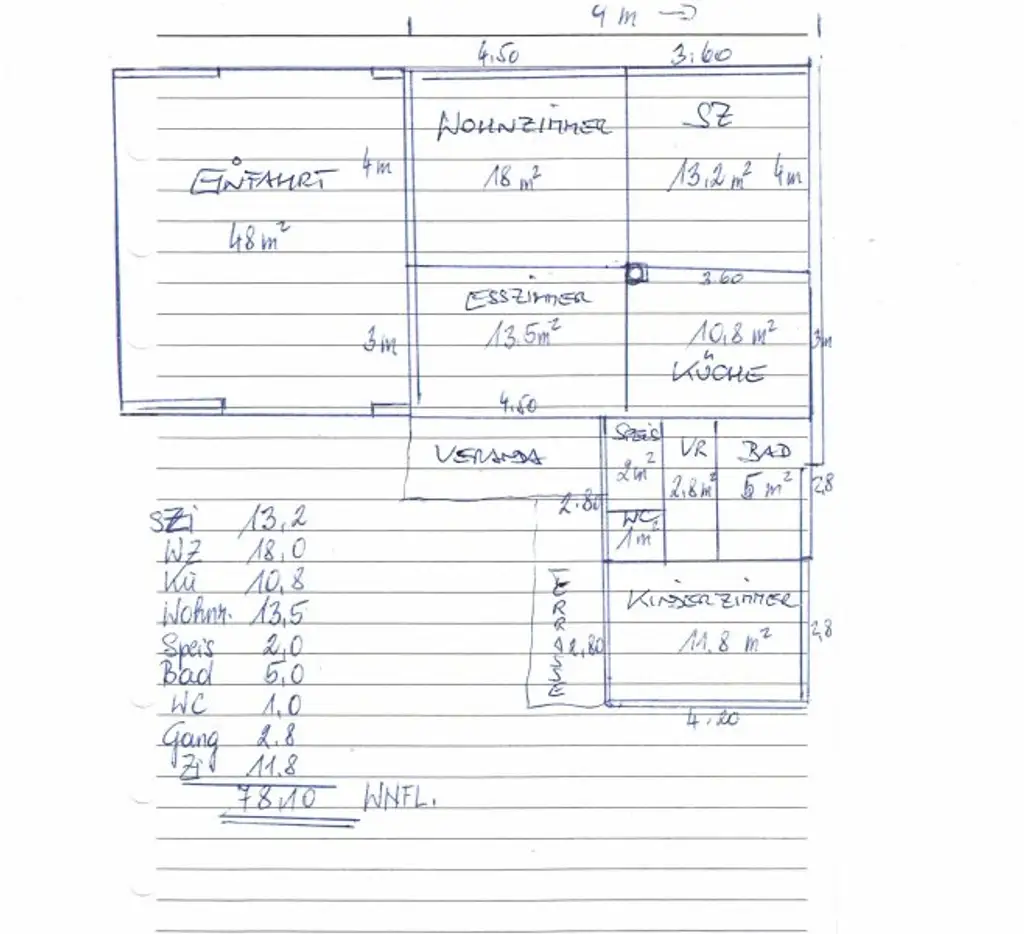 9 m →
4,50 3,60
WOHNZIMMER SZ
EINFAHRT 4 m 18 m² 13,2 m² 4m
48 m²
3.60
ESSZIMMER
3 m 13.5 m² 10,8 m² 3m
KÜCHE
4.50
VERANDA SPEIS VR BAD
2 m² 2,8 m² 5 m² 2,8
2.80
WC
1 m²
TERRASSE
KINDERZIMMER
2,80 11,8 m² 2,8
4.20
SZi 13,2
WZ 18,0
Kü 10,8
Wohnr. 13,5
Speis 2,0
Bad 5,0
WC 1,0
Gang 2.8
Zi 11.8
78,10 WNFL.